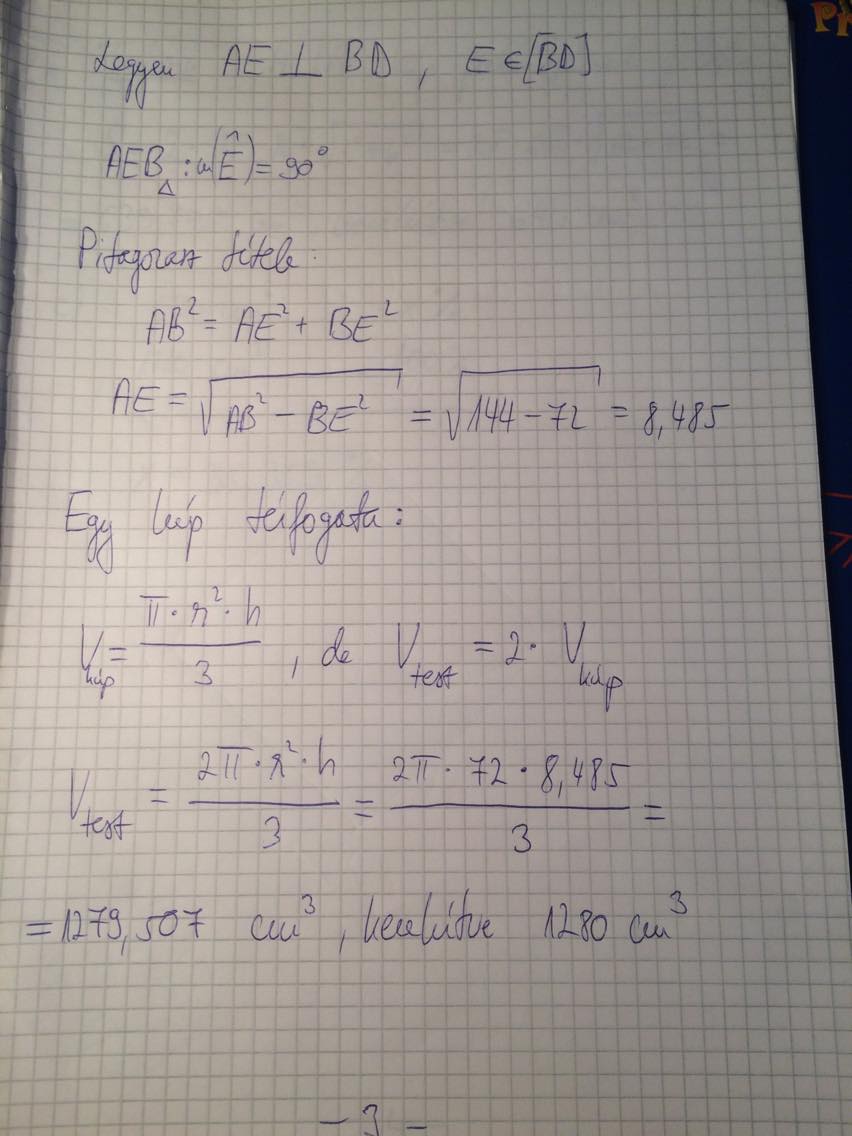 Legyen AE ⊥ BD, E ∈ [BD]
AEB△ : m(Ê) = 90°
Pitagorasz tétele:
AB² = AE² + BE²
AE = √(AB² − BE²) = √(144 − 72) = 8,485
Egy kúp térfogata:
V_kúp = (π · r² · h) / 3, de V_test = 2 · V_kúp
V_test = (2π · r² · h) / 3 = (2π · 72 · 8,485) / 3 =
= 1279,507 cm³, kerekítve 1280 cm³
− 3 −